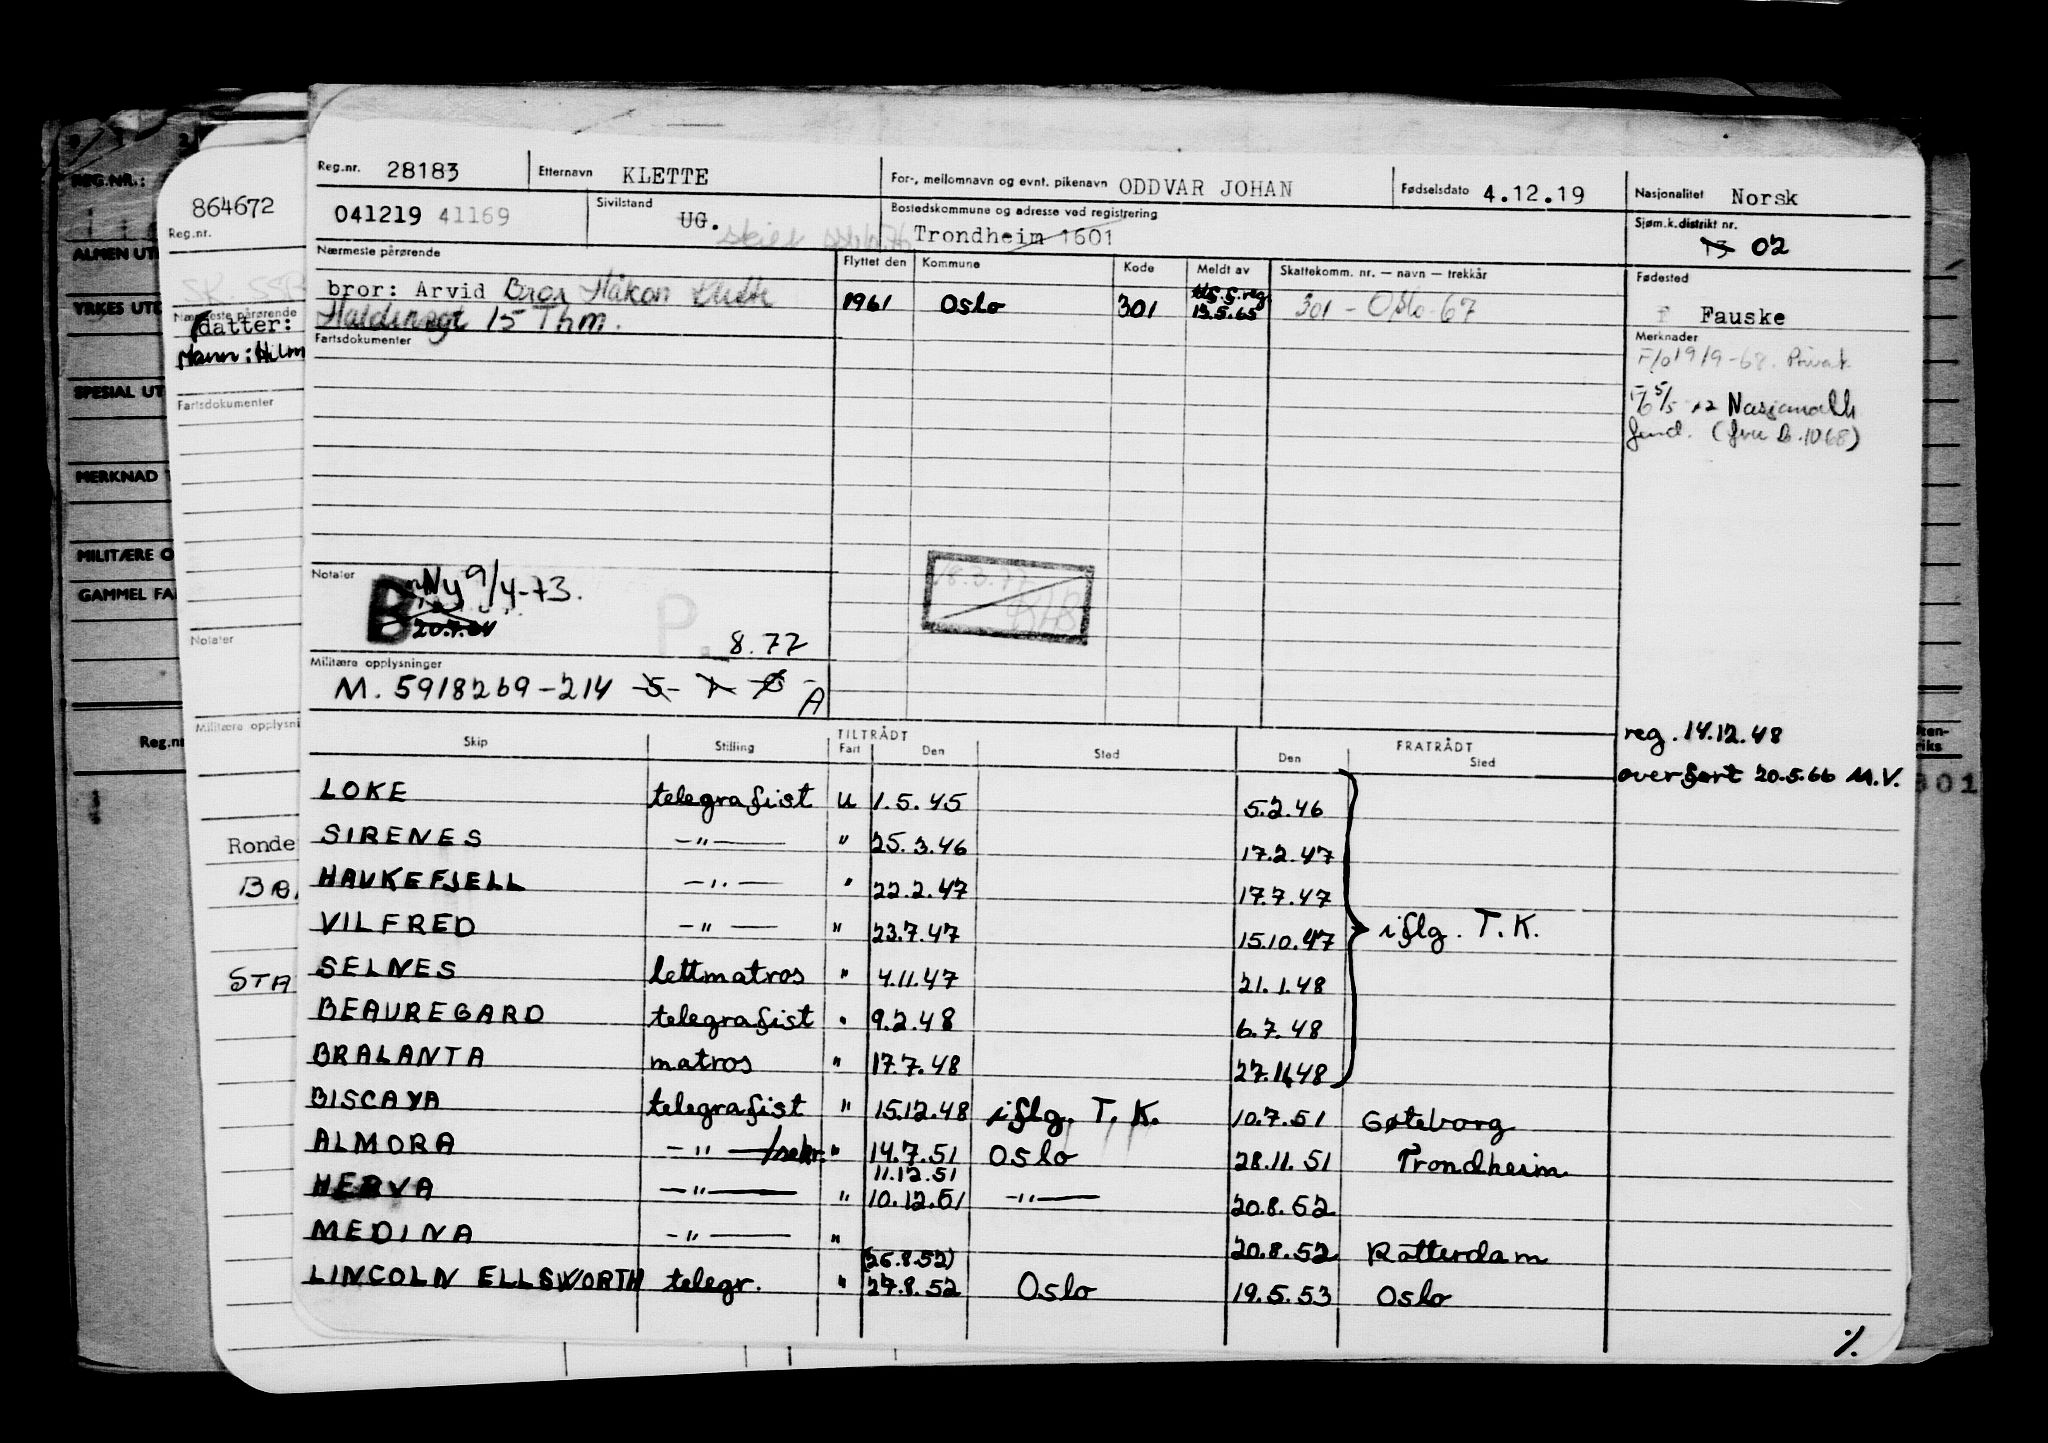 Reg.nr. 28183 Etternavn KLETTE For-, mellomnavn og evnt. pikenavn ODDVAR JOHAN Fødselsdato 4.12.19 Nasjonalitet Norsk
041219 41169 Sivilstand UG. Bostedskommune og adresse ved registrering Trondheim 1601 Sjøm.k.distrikt nr. 02
Nærmeste pårørende Flyttet den Kommune Kode Meldt av Skattekomm. nr. — navn — trekkår Fødested
bror: Arvid Bror Håkon Klette 1961 Oslo 301 13.5.65 301 - Oslo-67 Fauske
15 Thm.
Fartsdokumenter
Merknader
19/9-68. Privat
Nasjonalh
Notater
B Ny 9/4-73.
20.7.64
P. 8.77
Militære opplysninger
M. 5918269-214 A
reg. 14.12.48
overført 20.5.66 M.V.
Skip Stilling TILTRÅDT Fart Den Sted FRATRÅDT Den Sted
LOKE telegrafist u 1.5.45 5.2.46
SIRENES -"- " 25.3.46 17.2.47
HAUKEFJELL -"- " 22.2.47 17.7.47
VILFRED -"- " 23.7.47 15.10.47 iflg. T.K.
SELNES lettmatros " 4.11.47 21.1.48
BEAUREGARD telegrafist " 9.2.48 6.7.48
BRALANTA matros " 17.7.48 27.11.48
BISCAYA telegrafist " 15.12.48 iflg. T.K. 10.7.51 Gøteborg
ALMORA -"-/sekr. " 14.7.51 Oslo 28.11.51 Trondheim
11.12.51
HERVA -"- " 10.12.51 -"- 20.8.52
MEDINA -"- " 20.8.52 Rotterdam
(26.8.52)
LINCOLN ELLSWORTH telegr. " 27.8.52 Oslo 19.5.53 Oslo
%
864672
Reg.nr.
Nærmeste pårørende
datter:
Mann: Hilm
Fartsdokumenter
Notater
Militære opplysni
Ronde
STA
REG.NR.:
ALMEN UT
YRKES UTD
SPESIAL UT
MERKNAD T
MILITÆRE O
GAMMEL FA
Reg.nr
301